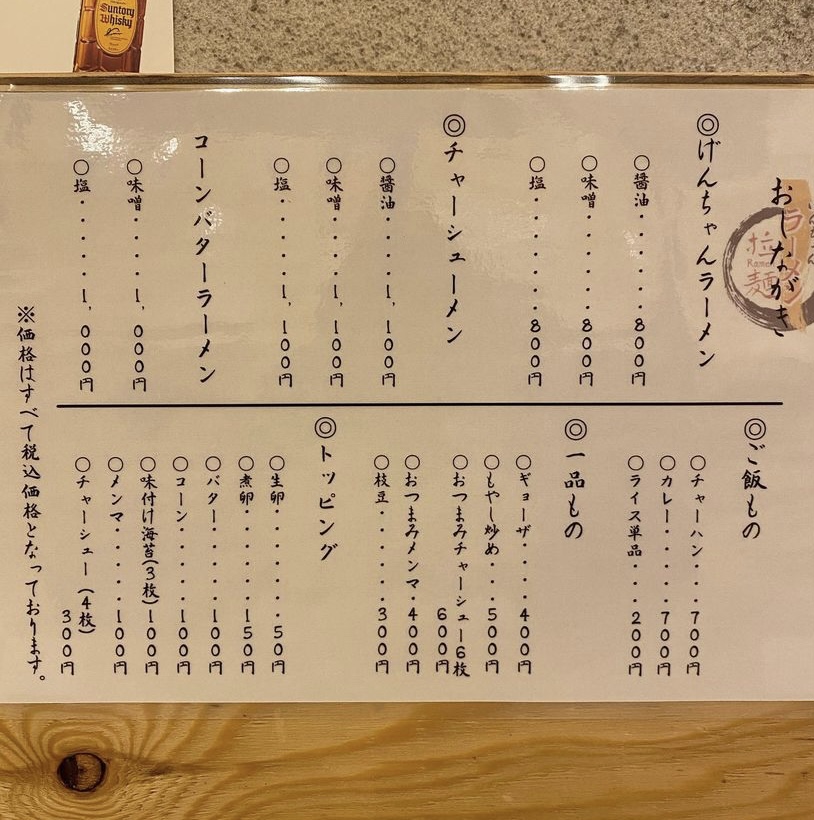 Suntory
Whisky
ラーメン
拉
Ramen
麺
おしながき
◎げんちゃんラーメン
○醤油・・・・・・800円
○味噌・・・・・・800円
○塩・・・・・・・800円
◎チャーシューメン
○醤油・・・・・1,100円
○味噌・・・・・1,100円
○塩・・・・・・1,100円
コーンバターラーメン
○味噌・・・・・1,000円
○塩・・・・・・1,000円
◎ご飯もの
○チャーハン・・・700円
○カレー・・・・・700円
○ライス単品・・・200円
◎一品もの
○ギョーザ・・・・400円
○もやし炒め・・・500円
○おつまみチャーシュー6枚
600円
○おつまみメンマ・400円
○枝豆・・・・・・300円
◎トッピング
○生卵・・・・・・50円
○煮卵・・・・・・150円
○バター・・・・・100円
○コーン・・・・・100円
○味付け海苔(3枚)100円
○メンマ・・・・・100円
○チャーシュー(4枚)
300円
※価格はすべて税込価格となっております。